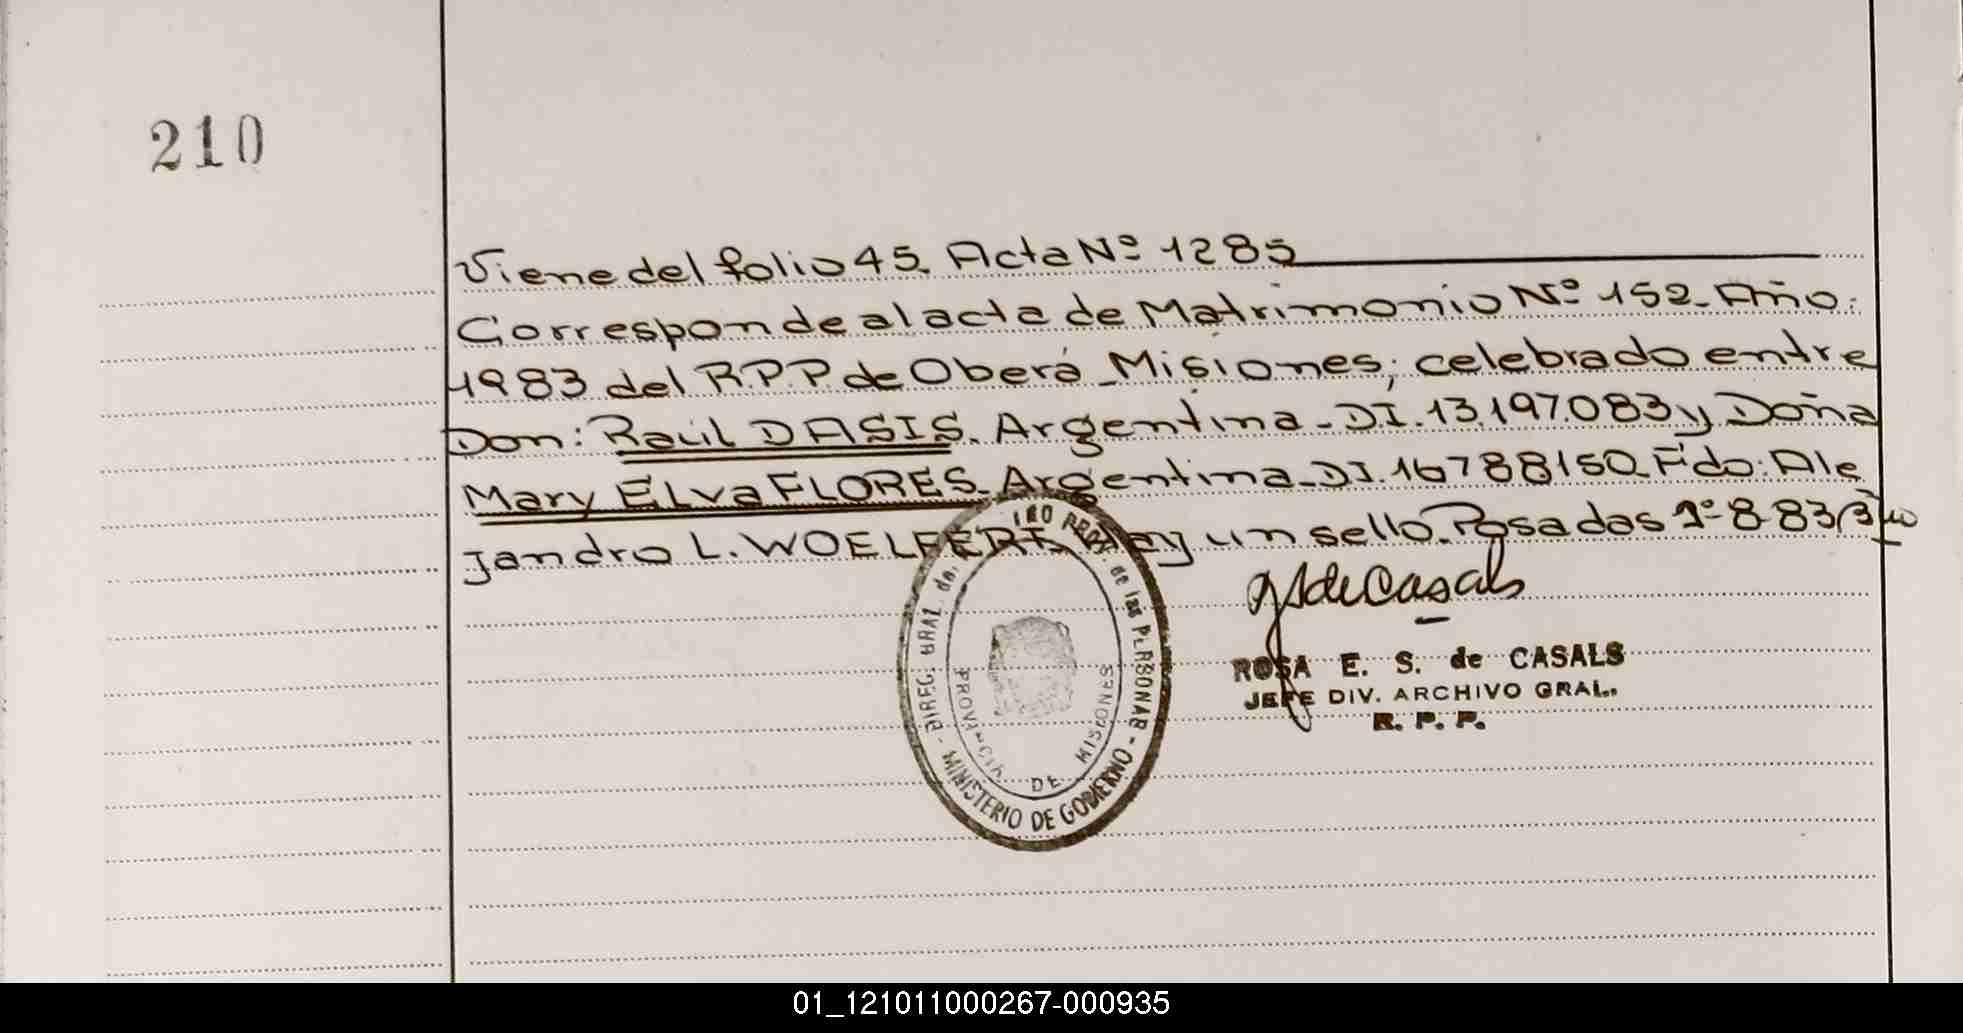 210
Viene del folio 45. Acta Nº 1285
Corresponde al acta de Matrimonio Nº 152. Año:
1983 del R.P.P. de Oberá - Misiones; celebrado entre
Don: Raúl DASIS. Argentina - DI. 13.197.083 y Doña
Mary Elva FLORES. Argentina - DI. 16788150. Fdo: Ale
jandro L. WOELFERT. Hay un sello. Posadas 1º-8-83
ROSA E. S. de CASALS
JEFE DIV. ARCHIVO GRAL.
R. P. P.
DIREC. GRAL. de. de las PERSONAS - MINISTERIO DE GOBIERNO -
PROVINCIA DE MISIONES
01_121011000267-000935